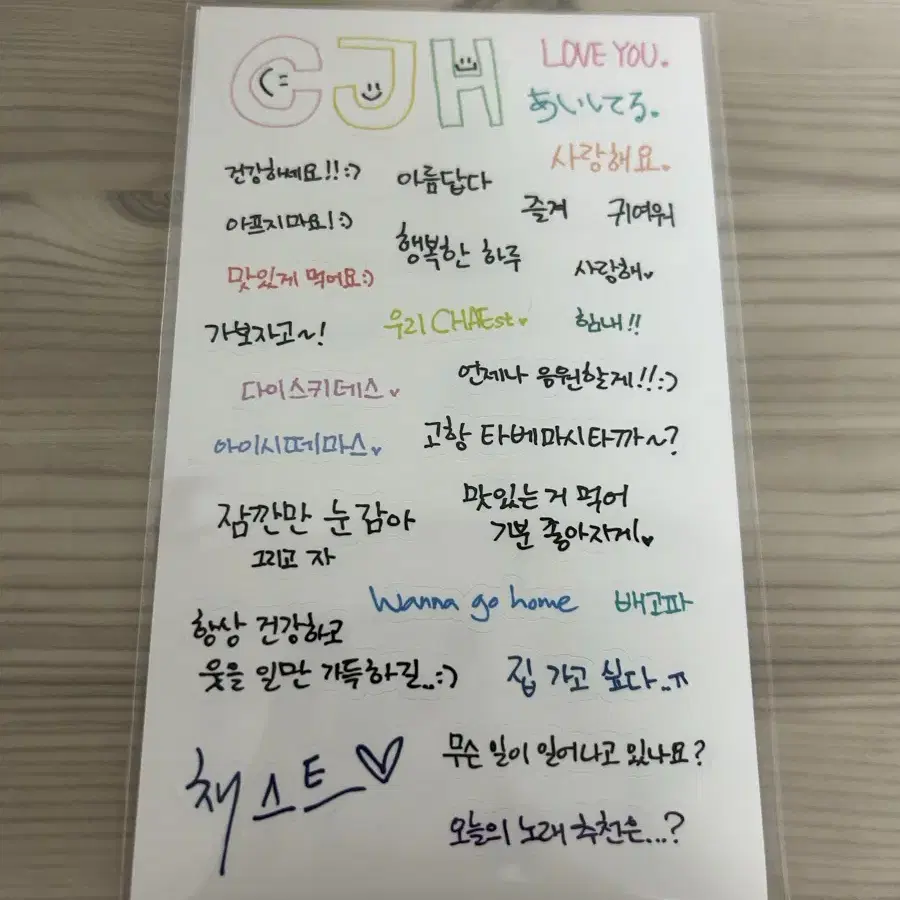 CJH
LOVE YOU.
あいしてる.
사랑해요.
건강하세요!! :)
아름답다
즐겨
귀여워
아프지마요! :)
행복한 하루
사랑해♥
맛있게 먹어요:)
가보자고~!
우리 CHAEst♥
힘내!!
다이스키데스♥
언제나 응원할게!! :)
아이시떼마스♥
고항 타베마시타까~?
잠깐만 눈감아
그리고 자
맛있는 거 먹어
기분 좋아지게♥
Wanna go home
배고파
항상 건강하고
웃을 일만 가득하길..:)
집 가고 싶다..ㅠ
채스트♡
무슨 일이 일어나고 있나요?
오늘의 노래 추천은...?